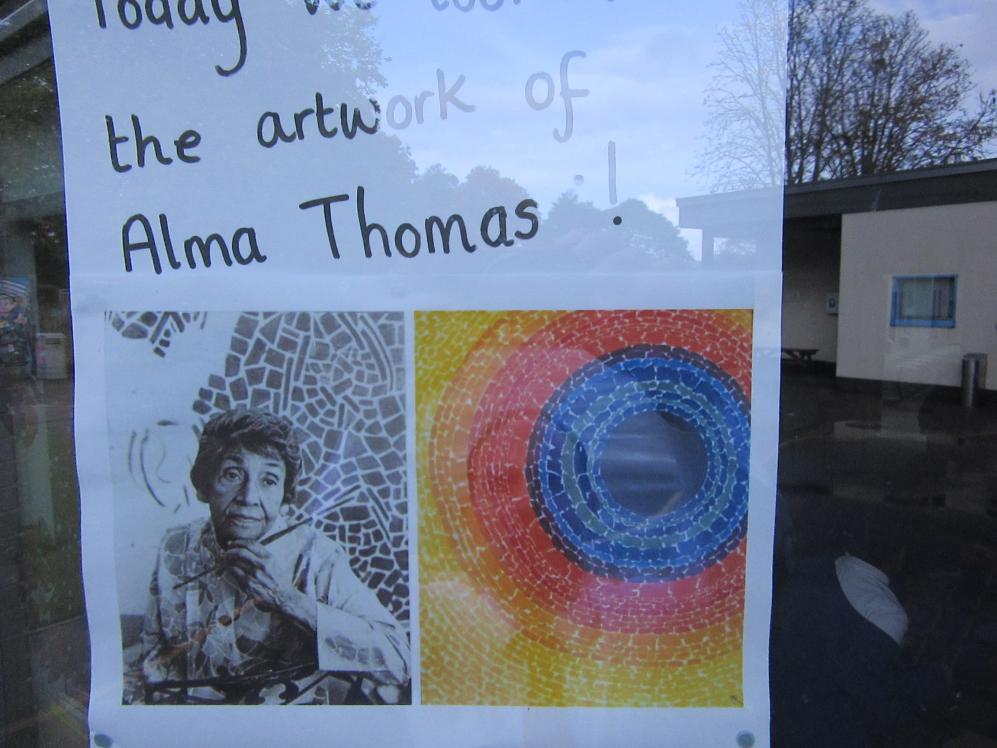 Today we
the artwork of
Alma Thomas !